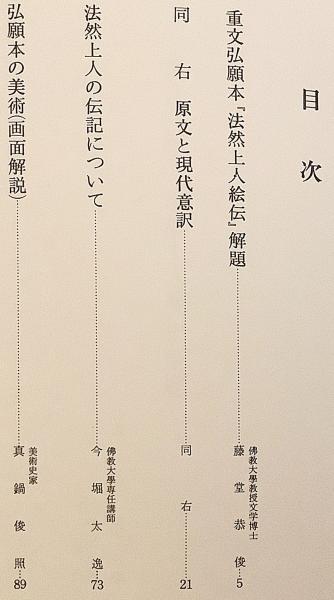 目次
重文弘願本『法然上人絵伝』解題……佛教大學教授文学博士 藤堂恭俊…5
同右 原文と現代意訳……同右…21
法然上人の伝記について……佛教大學専任講師 今堀太逸…73
弘願本の美術(画面解説)……美術史家 真鍋俊照…89